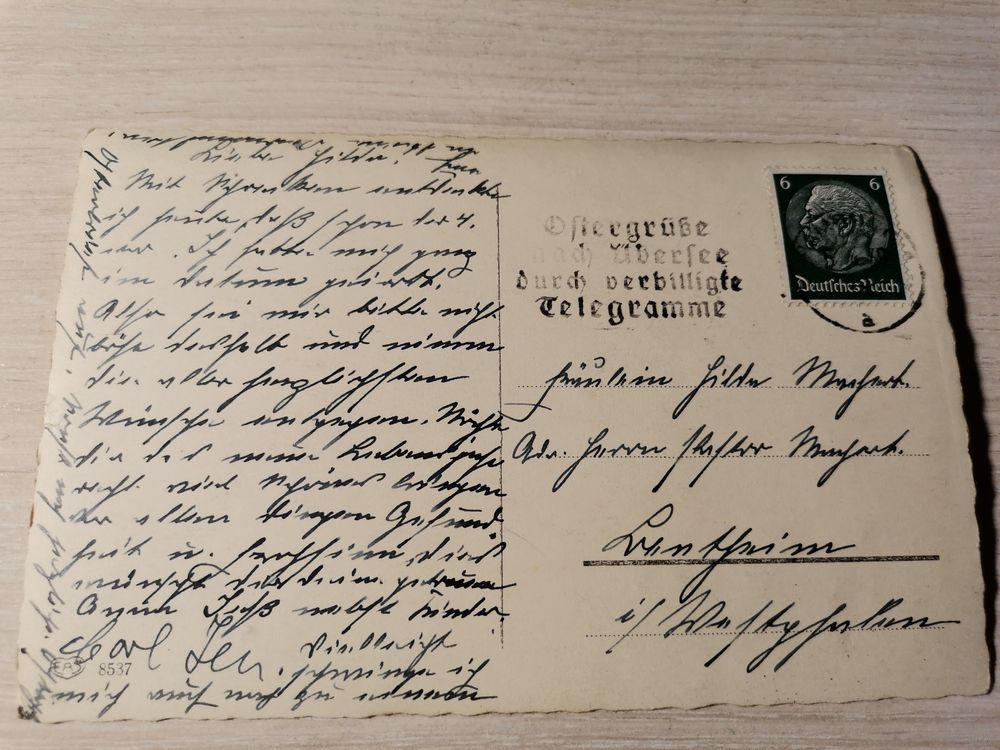 Liebe Hilde!
Mit Schrecken entdeckte
ich heute, daß schon der 4.
war. Ich hatte mich ganz
im Datum geirrt.
Also sei mir bitte nicht
böse deshalb und nimm
die aller herzlichsten
Wünsche entgegen. Möchte
dir das neue Lebensjahr
recht viel Schönes bringen
vor allen Dingen Gesund
heit u. Frohsinn, dies
wünscht dir deine getreue
nebst Kinder.
Vielleicht
schwinge ich
mich auch noch zu einem
EAS 8537
Ostergrüße
nach Übersee
durch verbilligte
Telegramme
6 6
Deutsches Reich
a
Fräulein Hilde
Adr. Herrn Pastor
Bentheim
i/ Westphalen